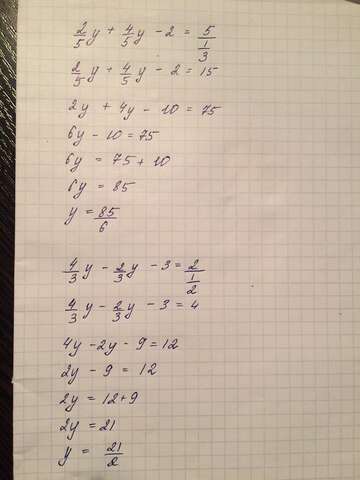 2/5 y + 4/5 y - 2 = 5/(1/3)
2/5 y + 4/5 y - 2 = 15
2y + 4y - 10 = 75
6y - 10 = 75
6y = 75 + 10
6y = 85
y = 85/6
4/3 y - 2/3 y - 3 = 2/(1/2)
4/3 y - 2/3 y - 3 = 4
4y - 2y - 9 = 12
2y - 9 = 12
2y = 12 + 9
2y = 21
y = 21/2